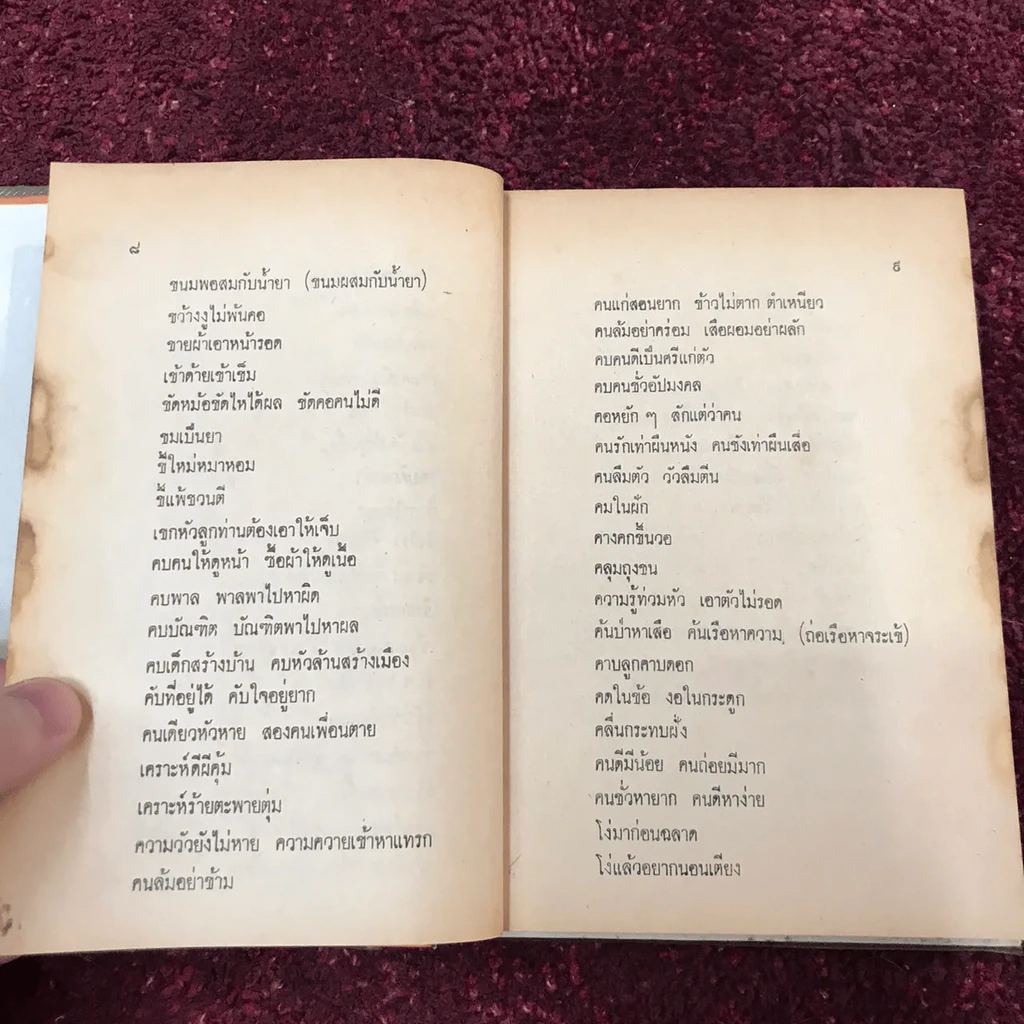 ๘
ขนมพอสมกับน้ำยา (ขนมผสมกับน้ำยา)
ขว้างงูไม่พ้นคอ
ขายผ้าเอาหน้ารอด
เข้าด้ายเข้าเข็ม
ขัดหม้อขัดไหได้ผล ขัดคอคนไม่ดี
ขมเป็นยา
ขี้ใหม่หมาหอม
ขี้แพ้ชวนตี
เขกหัวลูกท่านต้องเอาให้เจ็บ
คบคนให้ดูหน้า ซื้อผ้าให้ดูเนื้อ
คบพาล พาลพาไปหาผิด
คบบัณฑิต บัณฑิตพาไปหาผล
คบเด็กสร้างบ้าน คบหัวล้านสร้างเมือง
คับที่อยู่ได้ คับใจอยู่ยาก
คนเดียวหัวหาย สองคนเพื่อนตาย
เคราะห์ดีผีคุ้ม
เคราะห์ร้ายตะพายตุ่ม
ความวัวยังไม่หาย ความควายเข้าหาแทรก
คนล้มอย่าข้าม
๙
คนแก่สอนยาก ข้าวไม่ตาก ตำเหนียว
คนล้มอย่าคร่อม เสือผอมอย่าผลัก
คบคนดีเป็นศรีแก่ตัว
คบคนชั่วอัปมงคล
คอหยัก ๆ สักแต่ว่าคน
คนรักเท่าผืนหนัง คนชังเท่าผืนเสื่อ
คนลืมตัว วัวลืมตีน
คมในฝัก
คางคกขึ้นวอ
คลุมถุงชน
ความรู้ท่วมหัว เอาตัวไม่รอด
ค้นป่าหาเสือ ค้นเรือหาความ (ถ่อเรือหาจระเข้)
คาบลูกคาบดอก
คดในข้อ งอในกระดูก
คลื่นกระทบฝั่ง
คนดีมีน้อย คนถ่อยมีมาก
คนชั่วหายาก คนดีหาง่าย
โง่มาก่อนฉลาด
โง่แล้วอยากนอนเตียง